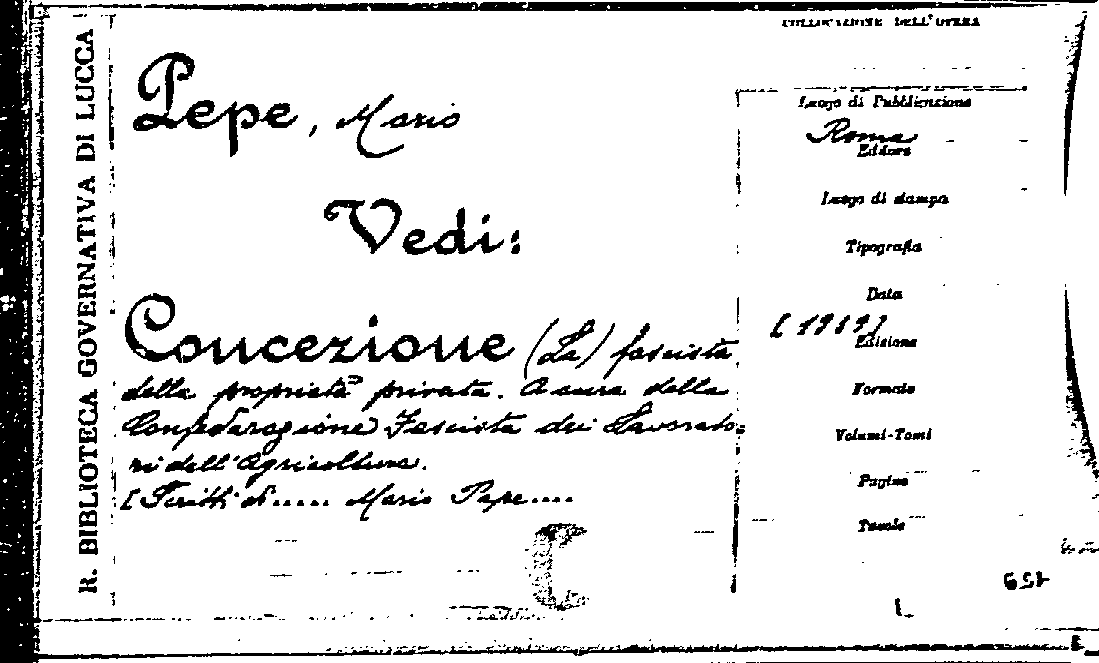 R. BIBLIOTECA GOVERNATIVA DI LUCCA
COLLOCAZIONE DELL'OPERA
Pepe, Mario
Vedi:
Concezione (La) fascista
della proprietà privata. A cura della
Confederazione Fascista dei Lavorato=
ri dell'Agricoltura.
[Scritti di..... Mario Pepe....
Luogo di Pubblicazione
Roma
Editore
Luogo di stampa
Tipografia
Data
[1939]
Edizione
Formato
Volumi-Tomi
Pagine
Tavole